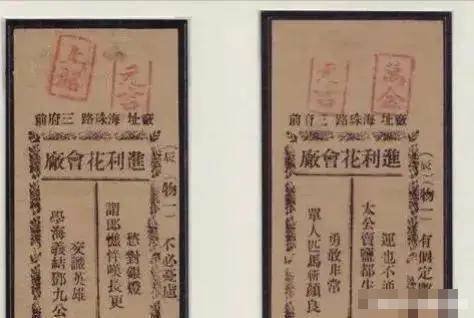 元吉
廠址海珠路三府前
進利花會廠
(辰)(物一)不必憂慮
愁對銀燈
謂郎憔悴嘆長更
交識英雄
學海義結鄧九公
萬金
元吉
廠址海珠路三府前
進利花會廠
(辰)(物一)有個定數
運也不通
太公賣鹽都生
勇敢非常
單人匹馬斬顏良